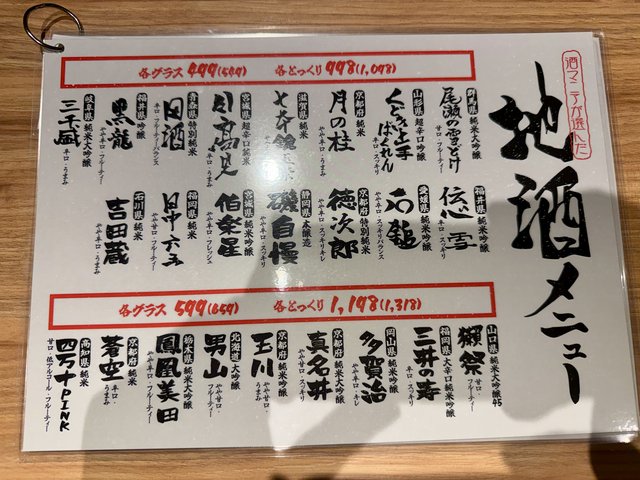 酒マニアが選んだ
地酒メニュー
各グラス 499(549) 各とっくり 998(1,098)
群馬県 純米大吟醸
尾瀬の雪どけ
甘口・フルーティー
山形県 超辛口吟醸
くどき上手
ばくれん
辛口・スッキリ
京都府 純米
月の桂
やや辛口・スッキリ
滋賀県 純米
宮城県 超辛口純米
日高見
辛口・うまみ
特別純米
日輪
福井県 吟醸
黒龍
辛口・フルーティー
岐阜県 純米大吟醸
三千盛
辛口・うまみ
福井県 純米吟醸
伝心 雪
辛口・スッキリ
愛媛県 純米吟醸
石鎚
やや辛口・スッキリバランス
京都府 特別純米
徳次郎
やや辛口・スッキリキレ
静岡県 本醸造
磯自慢
やや辛口・スッキリ
宮城県 純米吟醸
伯楽星
やや辛口・フレッシュ
福岡県 純米
田中六五
やや甘口・フルーティー
石川県 純米
吉田蔵
やや辛口・うまみ
各グラス 599(659) 各とっくり 1,198(1,318)
山口県 純米大吟醸45
獺祭
甘口・フルーティー
福岡県 大辛口純米吟醸
三井の寿
辛口・スッキリ
岡山県 純米大吟醸
多賀治
やや辛口・キレ
京都府 純米吟醸
真名井
やや辛口・フルーティー
京都府 純米吟醸
玉川
やや甘口・うまみ
北海道 大吟醸
男山
やや辛口・フルーティー
栃木県 純米大吟醸
鳳凰美田
やや甘口・フルーティー
京都府 純米
蒼空
辛口・うまみ
高知県 純米
四万十PINK
甘口・低アルコール・フルーティー